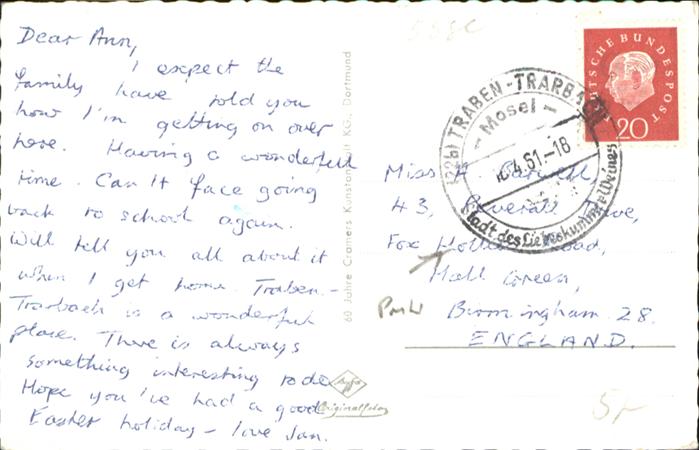 Dear Ann,
I expect the
family have told you
how I'm getting on over
here. Having a wonderful
time. Can't face going
back to school again.
Will tell you all about it
when I get home. Traben-
Trarbach is a wonderful
place. There is always
something interesting to do
Hope you've had a good
Easter holiday - love Jan.
60 Jahre Cramers Kunstanstalt KG., Dortmund
Agfa
Originalfoto
(22b) TRABEN-TRARBACH
- Mosel -
4.61-18
Stadt des Weines
DEUTSCHE BUNDESPOST
20
Miss
43,
Fox Road,
Hall Green,
Birmingham 28.
ENGLAND.
5/-